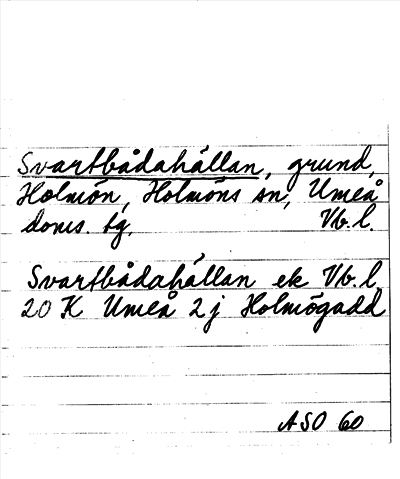 Svartbådahällan, grund,
Holmön, Holmöns sn, Umeå
doms. tg, Vb. l.
Svartbådahällan ek Vb. l.
20 K Umeå 2 j Holmögadd
ASO 60